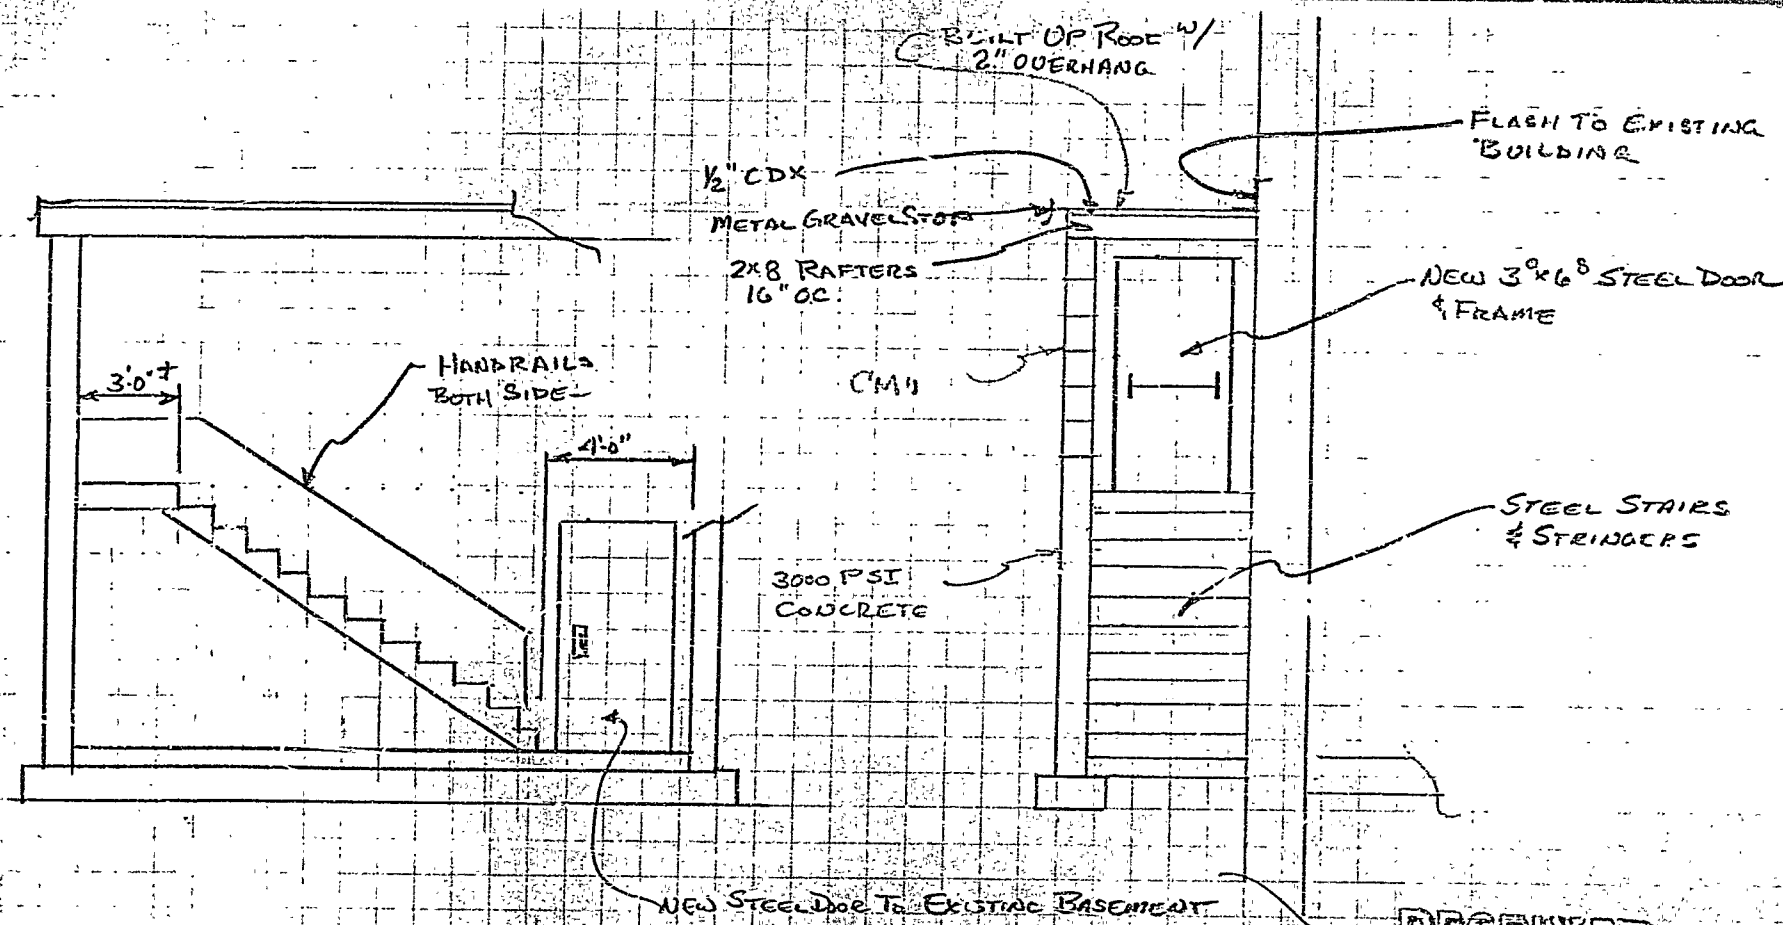 BUILT UP ROOF W/
2" OVERHANG
FLASH TO EXISTING
BUILDING
1/2" CDX
METAL GRAVEL STOP
2x8 RAFTERS
16" O.C.
NEW 3⁰ x 6⁸ STEEL DOOR
& FRAME
3'-0" ±
HANDRAILS
BOTH SIDE
CMU
4'-0"
STEEL STAIRS
& STRINGERS
3000 PSI
CONCRETE
NEW STEEL DOOR TO EXISTING BASEMENT